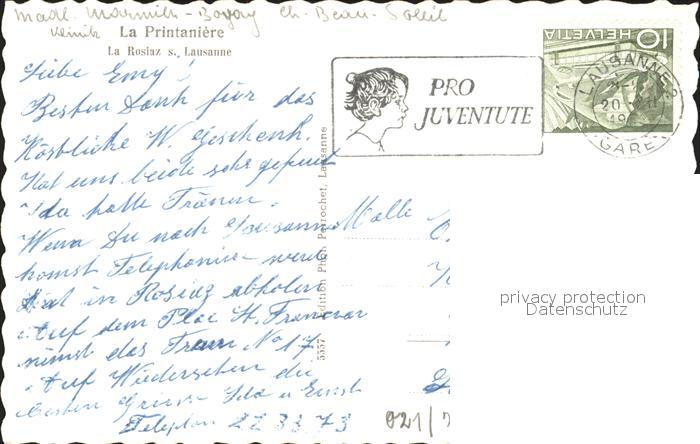 Madl. Ch. Beau-Soleil
Klinik La Printanière
La Rosiaz s. Lausanne
Liebe Emy!
Besten Dank für das
Köstliche W. Geschenk.
Hat uns beide sehr gefreut
Ida hatte Tränen.
Wenn Du nach Lousanne
komst Telephonire werde
in Rosiaz abholen
Auf dem Plac St. Francoar
nimst das Tram No 17
Auf Wiedersehen die
besten Grüsse Ida u Ernst
Telephon 22 33 73
5557 Edition Phot. Perrochet, Lausanne
PRO
JUVENTUTE
HELVETIA
10
LAUSANNE 2
20
GARE
Malle
021/7
privacy protection
Datenschutz